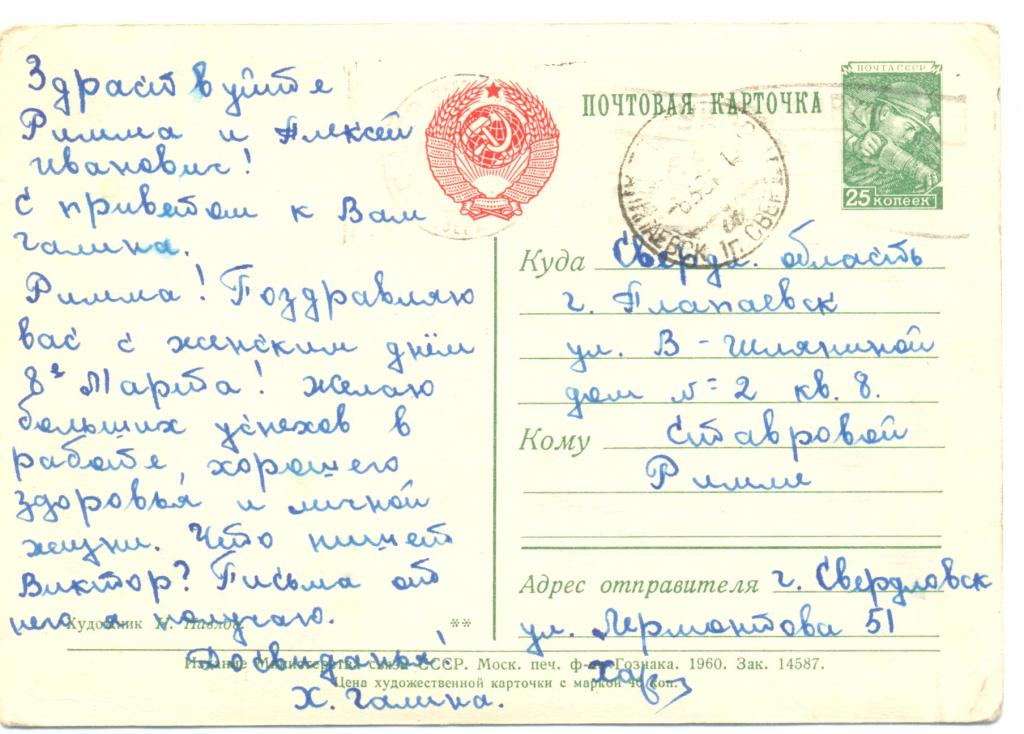 Здраствуйте
Римма и Алексей
Иванович!
С приветом к Вам
Галина.
Римма! Поздравляю
вас с женским днём
8е Марта! Желаю
больших успехов в
работе, хорошего
здоровья и личной
жизни. Что пишет
Виктор? Письма от
него я получаю.
Досвиданья!
Х. Галина.
Художник Н. Павлов.
**
ПОЧТОВАЯ КАРТОЧКА
ПОЧТА СССР
25 КОПЕЕК
АЛАПАЕВСК 1 Г. СВЕРДЛ
Куда Свердл. область
г. Алапаевск
ул. В-Шляпиной
дом №=2 кв. 8.
Кому Ставровой
Римме
Адрес отправителя г. Свердловск
ул. Лермонтова 51
Издание Министерства связи СССР. Моск. печ. ф-ка Гознака. 1960. Зак. 14587.
Цена художественной карточки с маркой 40 коп.